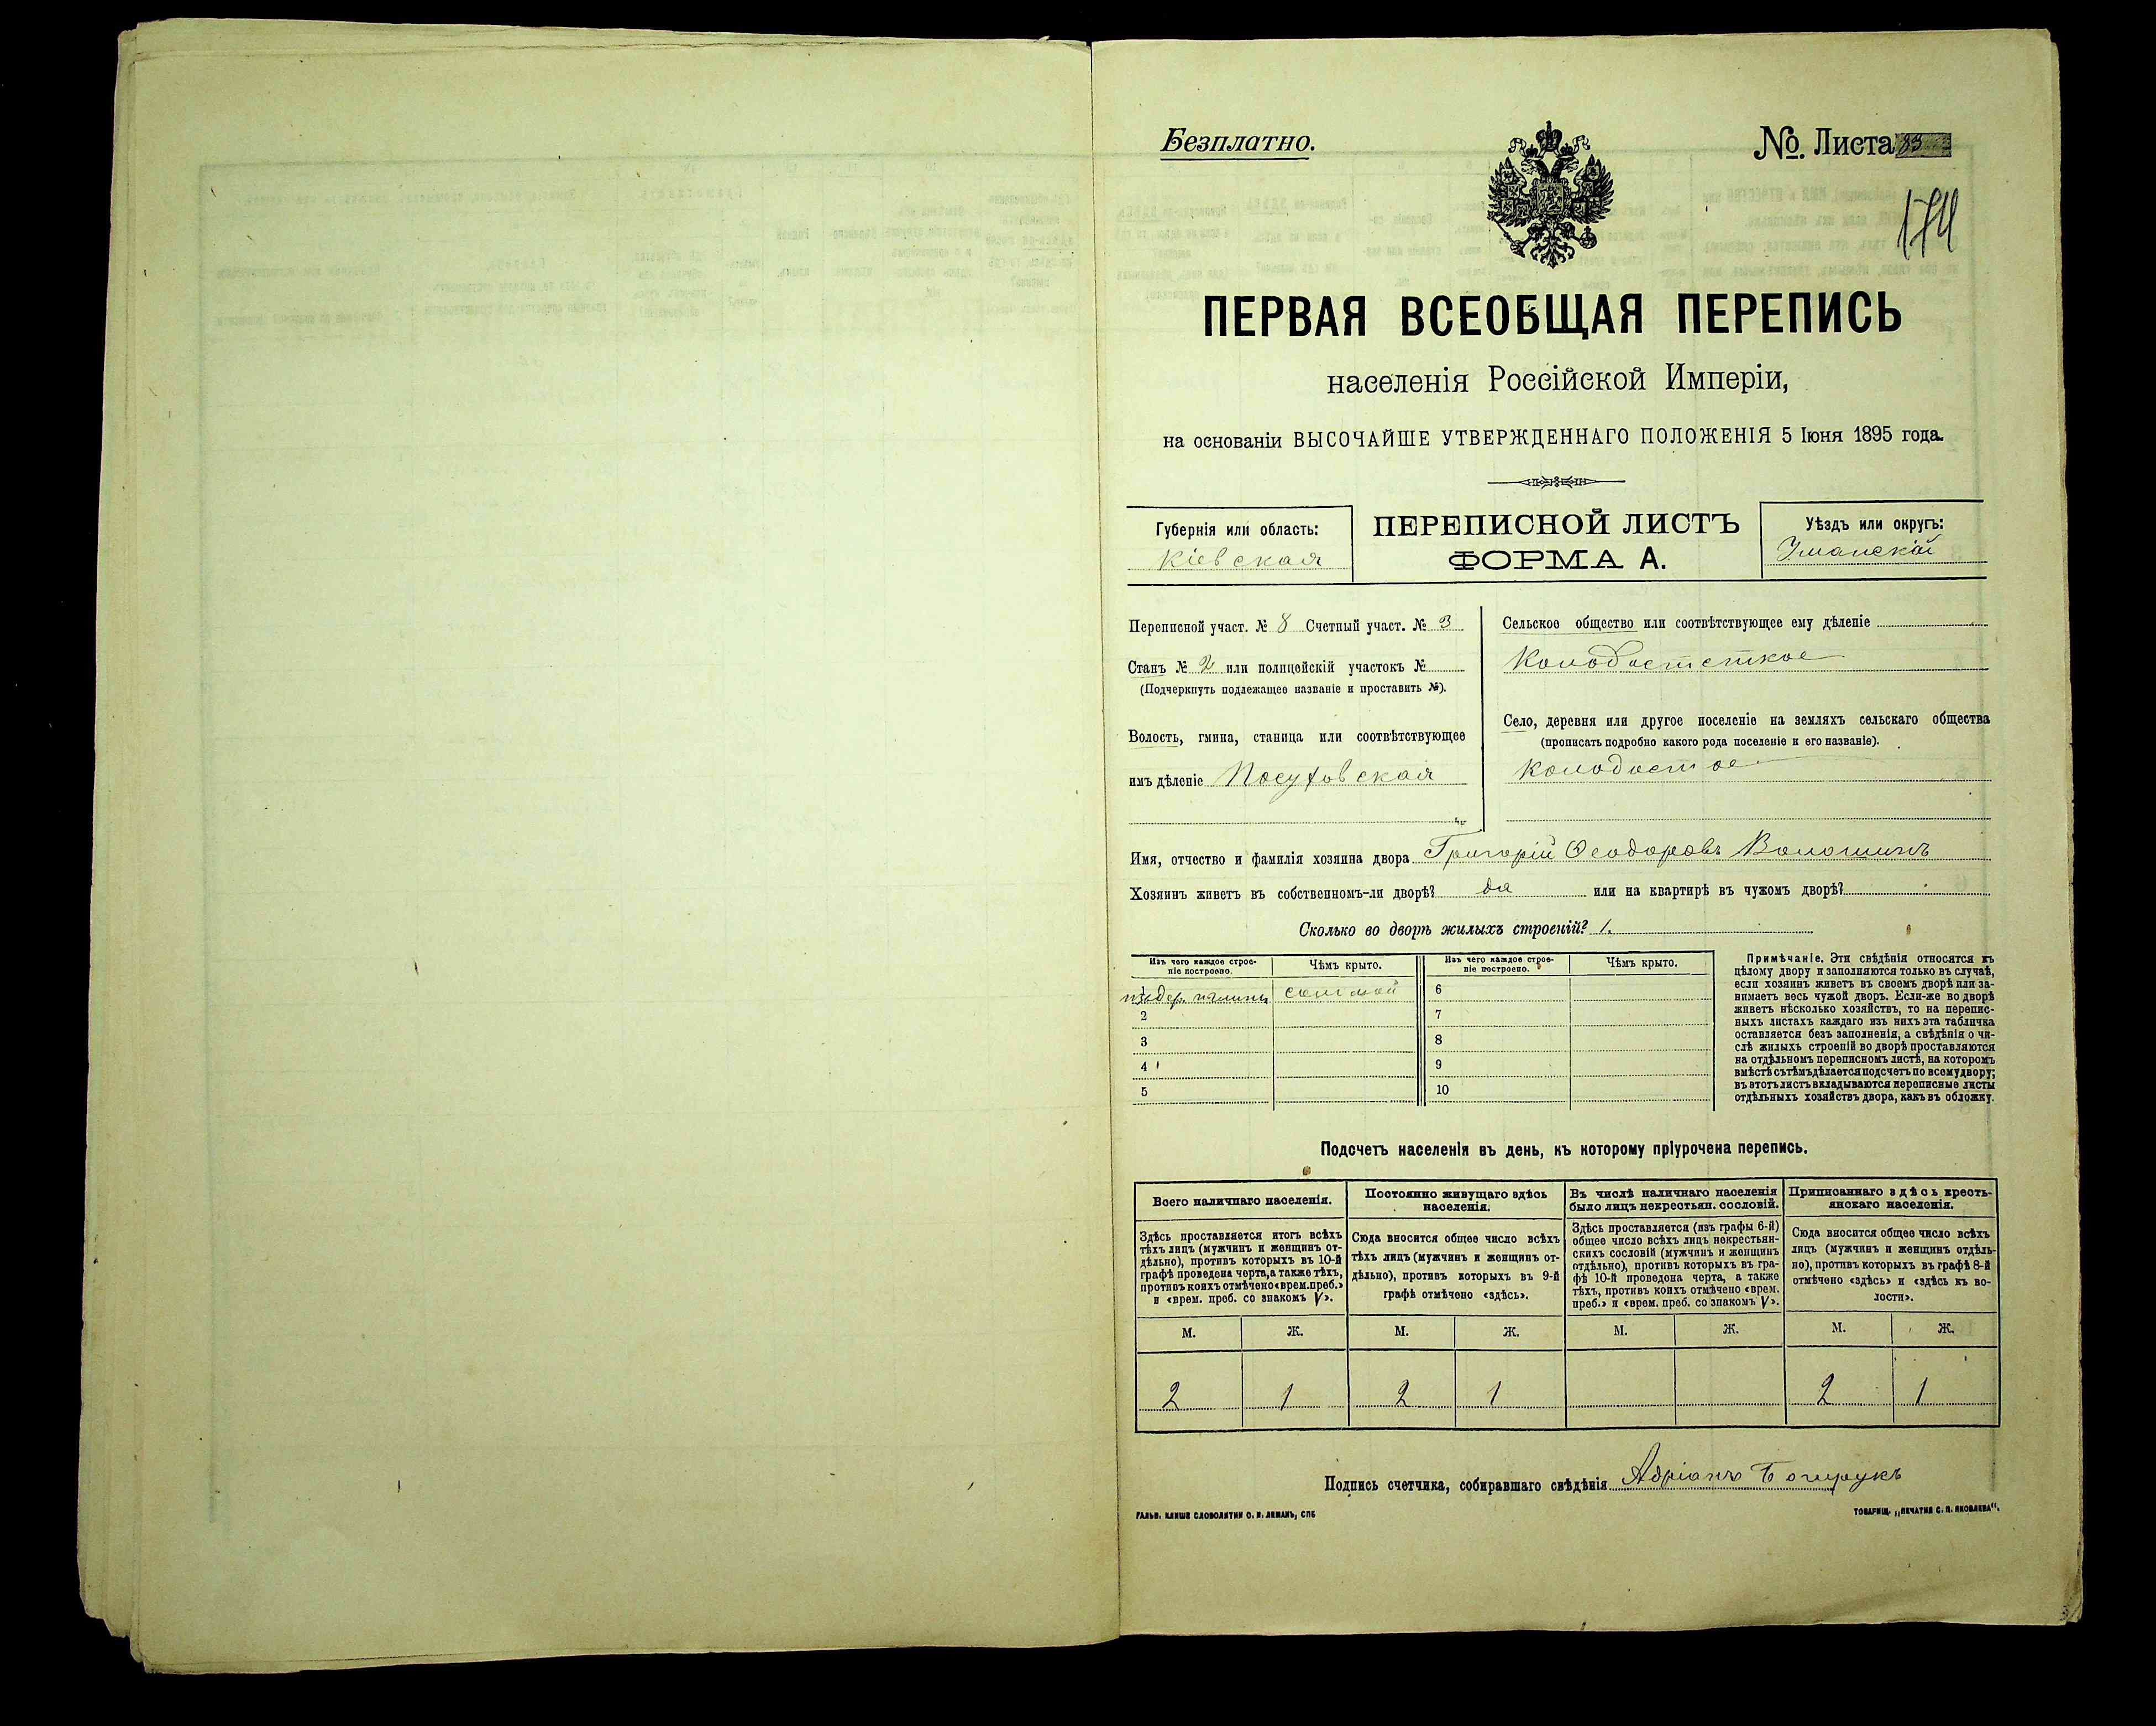 Безплатно.
№. Листа 83
174
ПЕРВАЯ ВСЕОБЩАЯ ПЕРЕПИСЬ
населенія Россійской Имперіи,
на основаніи ВЫСОЧАЙШЕ УТВЕРЖДЕННАГО ПОЛОЖЕНІЯ 5 Іюня 1895 года.
Губернія или область:
Кіевская
ПЕРЕПИСНОЙ ЛИСТЪ
ФОРМА А.
Уѣздъ или округъ:
Уманскій
Переписной участ. № 8 Счетный участ. № 3
Станъ № 2 или полицейскій участокъ №
(Подчеркнуть подлежащее названіе и проставить №).
Волость, гмина, станица или соотвѣтствующее
имъ дѣленіе Посуховская
Сельское общество или соотвѣтствующее ему дѣленіе
Колодистское
Село, деревня или другое поселеніе на земляхъ сельскаго общества
(прописать подробно какого рода поселеніе и его названіе).
Колодистое
Имя, отчество и фамилія хозяина двора Григорій Феодоровъ Волошинъ
Хозяинъ живетъ въ собственномъ-ли дворѣ? да или на квартирѣ въ чужомъ дворѣ?
Сколько во дворѣ жилыхъ строеній? 1.
Изъ чего каждое строе-
ніе построено.
Чѣмъ крыто.
Изъ чего каждое строе-
ніе построено.
Чѣмъ крыто.
изъ дер. и глины соломой 6
2 7
3 8
4 9
5 10
Примѣчаніе. Эти свѣдѣнія относятся къ
цѣлому двору и заполняются только въ случаѣ,
если хозяинъ живетъ въ своемъ дворѣ или за-
нимаетъ весь чужой дворъ. Если-же во дворѣ
живетъ нѣсколько хозяйствъ, то на перепис-
ныхъ листахъ каждаго изъ нихъ эта табличка
оставляется безъ заполненія, а свѣдѣнія о чи-
слѣ жилыхъ строеній во дворѣ проставляются
на отдѣльномъ переписномъ листѣ, на которомъ
вмѣстѣ съ тѣмъ дѣлается подсчетъ по всему двору;
въ этотъ листъ вкладываются переписные листы
отдѣльныхъ хозяйствъ двора, какъ въ обложку.
Подсчетъ населенія въ день, къ которому пріурочена перепись.
Всего наличнаго населенія.
Здѣсь проставляется итогъ всѣхъ
тѣхъ лицъ (мужчинъ и женщинъ от-
дѣльно), противъ которыхъ въ 10-й
графѣ проведена черта, а также тѣхъ,
противъ коихъ отмѣчено «врем. преб.»
и «врем. преб. со знакомъ V».
Постоянно живущаго здѣсь
населенія.
Сюда вносится общее число всѣхъ
тѣхъ лицъ (мужчинъ и женщинъ от-
дѣльно), противъ которыхъ въ 9-й
графѣ отмѣчено «здѣсь».
Въ числѣ наличнаго населенія
было лицъ некрестьян. сословій.
Здѣсь проставляется (изъ графы 6-й)
общее число всѣхъ лицъ некрестьян-
скихъ сословій (мужчинъ и женщинъ
отдѣльно), противъ которыхъ въ гра-
фѣ 10-й проведена черта, а также
тѣхъ, противъ коихъ отмѣчено «врем.
преб.» и «врем. преб. со знакомъ V».
Приписаннаго здѣсь кресть-
янскаго населенія.
Сюда вносится общее число всѣхъ
лицъ (мужчинъ и женщинъ отдѣль-
но), противъ которыхъ въ графѣ 8-й
отмѣчено «здѣсь» и «здѣсь къ во-
лости».
М. Ж. М. Ж. М. Ж. М. Ж.
2 1 2 1 2 1
Подпись счетчика, собиравшаго свѣдѣнія Адріанъ
ГАЛЬВ. КЛИШЕ СЛОВОЛИТНИ О. И. ЛЕМАНЪ, СПБ
ТОВАРИЩ. „ПЕЧАТНЯ С. П. ЯКОВЛЕВА“.